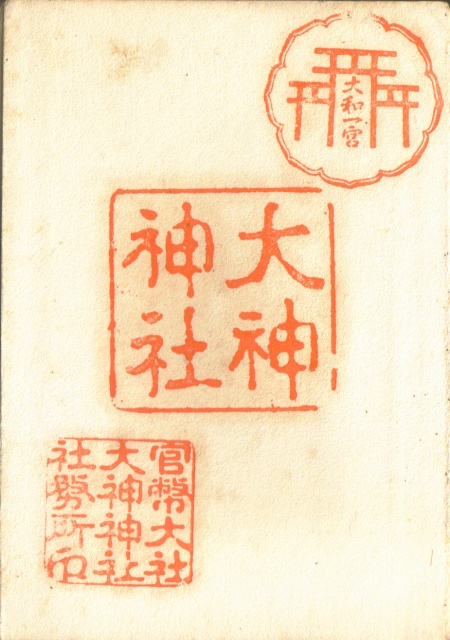 大和一宮
大神
神社
官幣大社
大神神社
社務所印